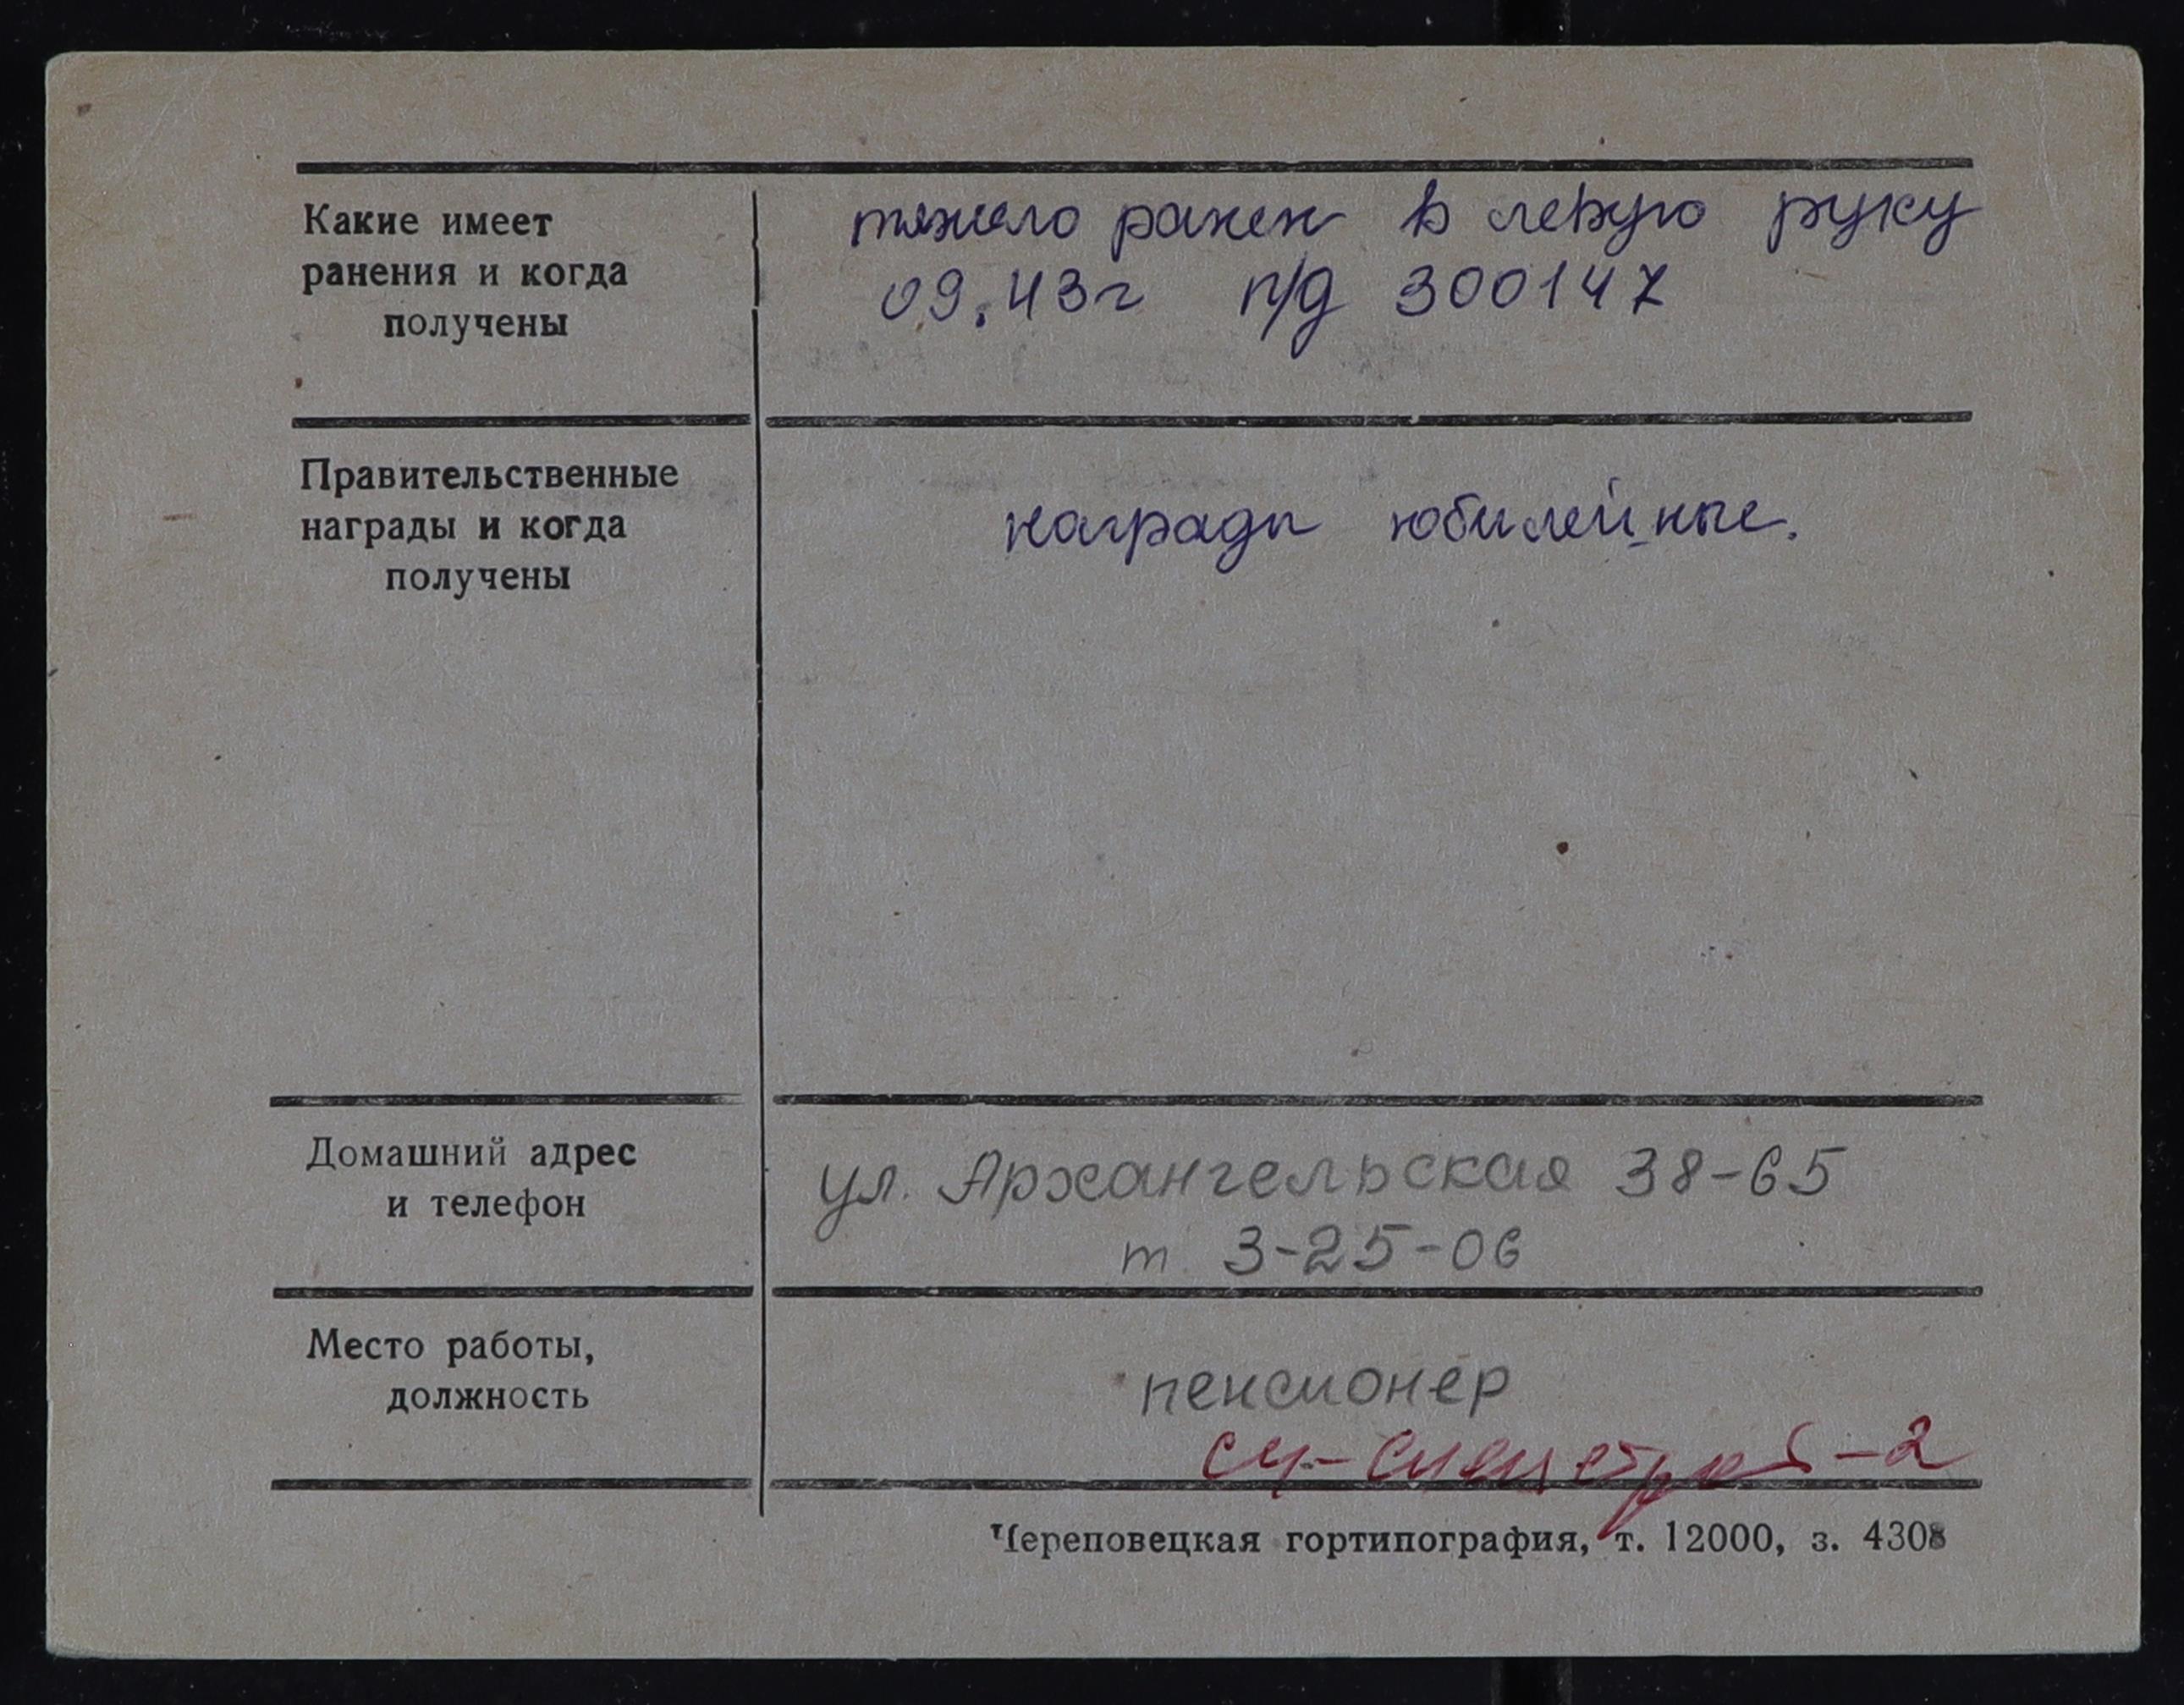 Какие имеет
ранения и когда
получены
тяжело ранен в левую руку
09.43г п/д 300147
Правительственные
награды и когда
получены
награды юбилейные.
Домашний адрес
и телефон
ул. Архангельская 38-65
т. 3-25-06
Место работы,
должность
пенсионер
су-спецстрой-2
Череповецкая гортипография, т. 12000, з. 4308